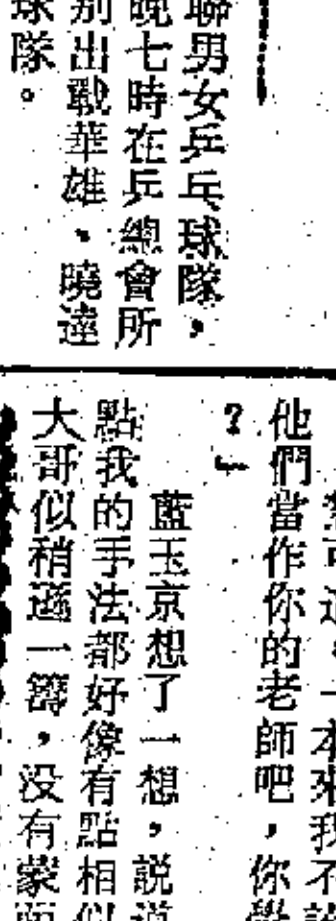 聯男女乒乓球隊，
晚七時在乒總會所
別出戰華雄、曉達
球隊。
本來我不
他們當作你的老師吧，你學
？」
藍玉京想了一想，説道
點我的手法都好像有點相似
大哥似稍遜一籌，没有蒙面